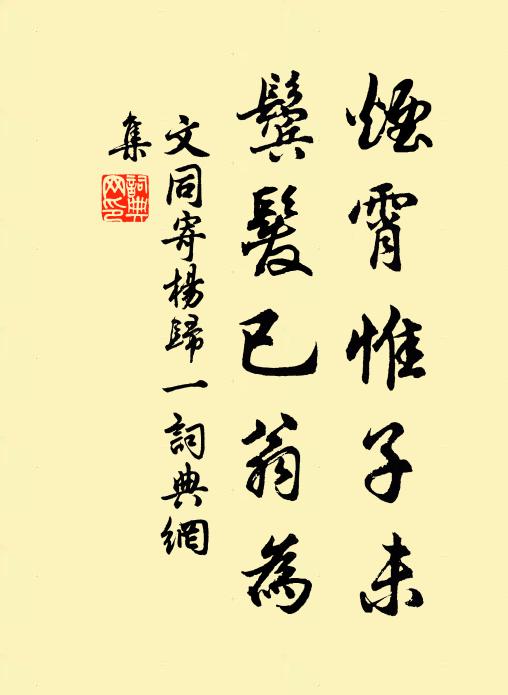 煙霄惟子未
鬢髮已翁為
文同寄楊歸一詞典網
集
詞典
網印